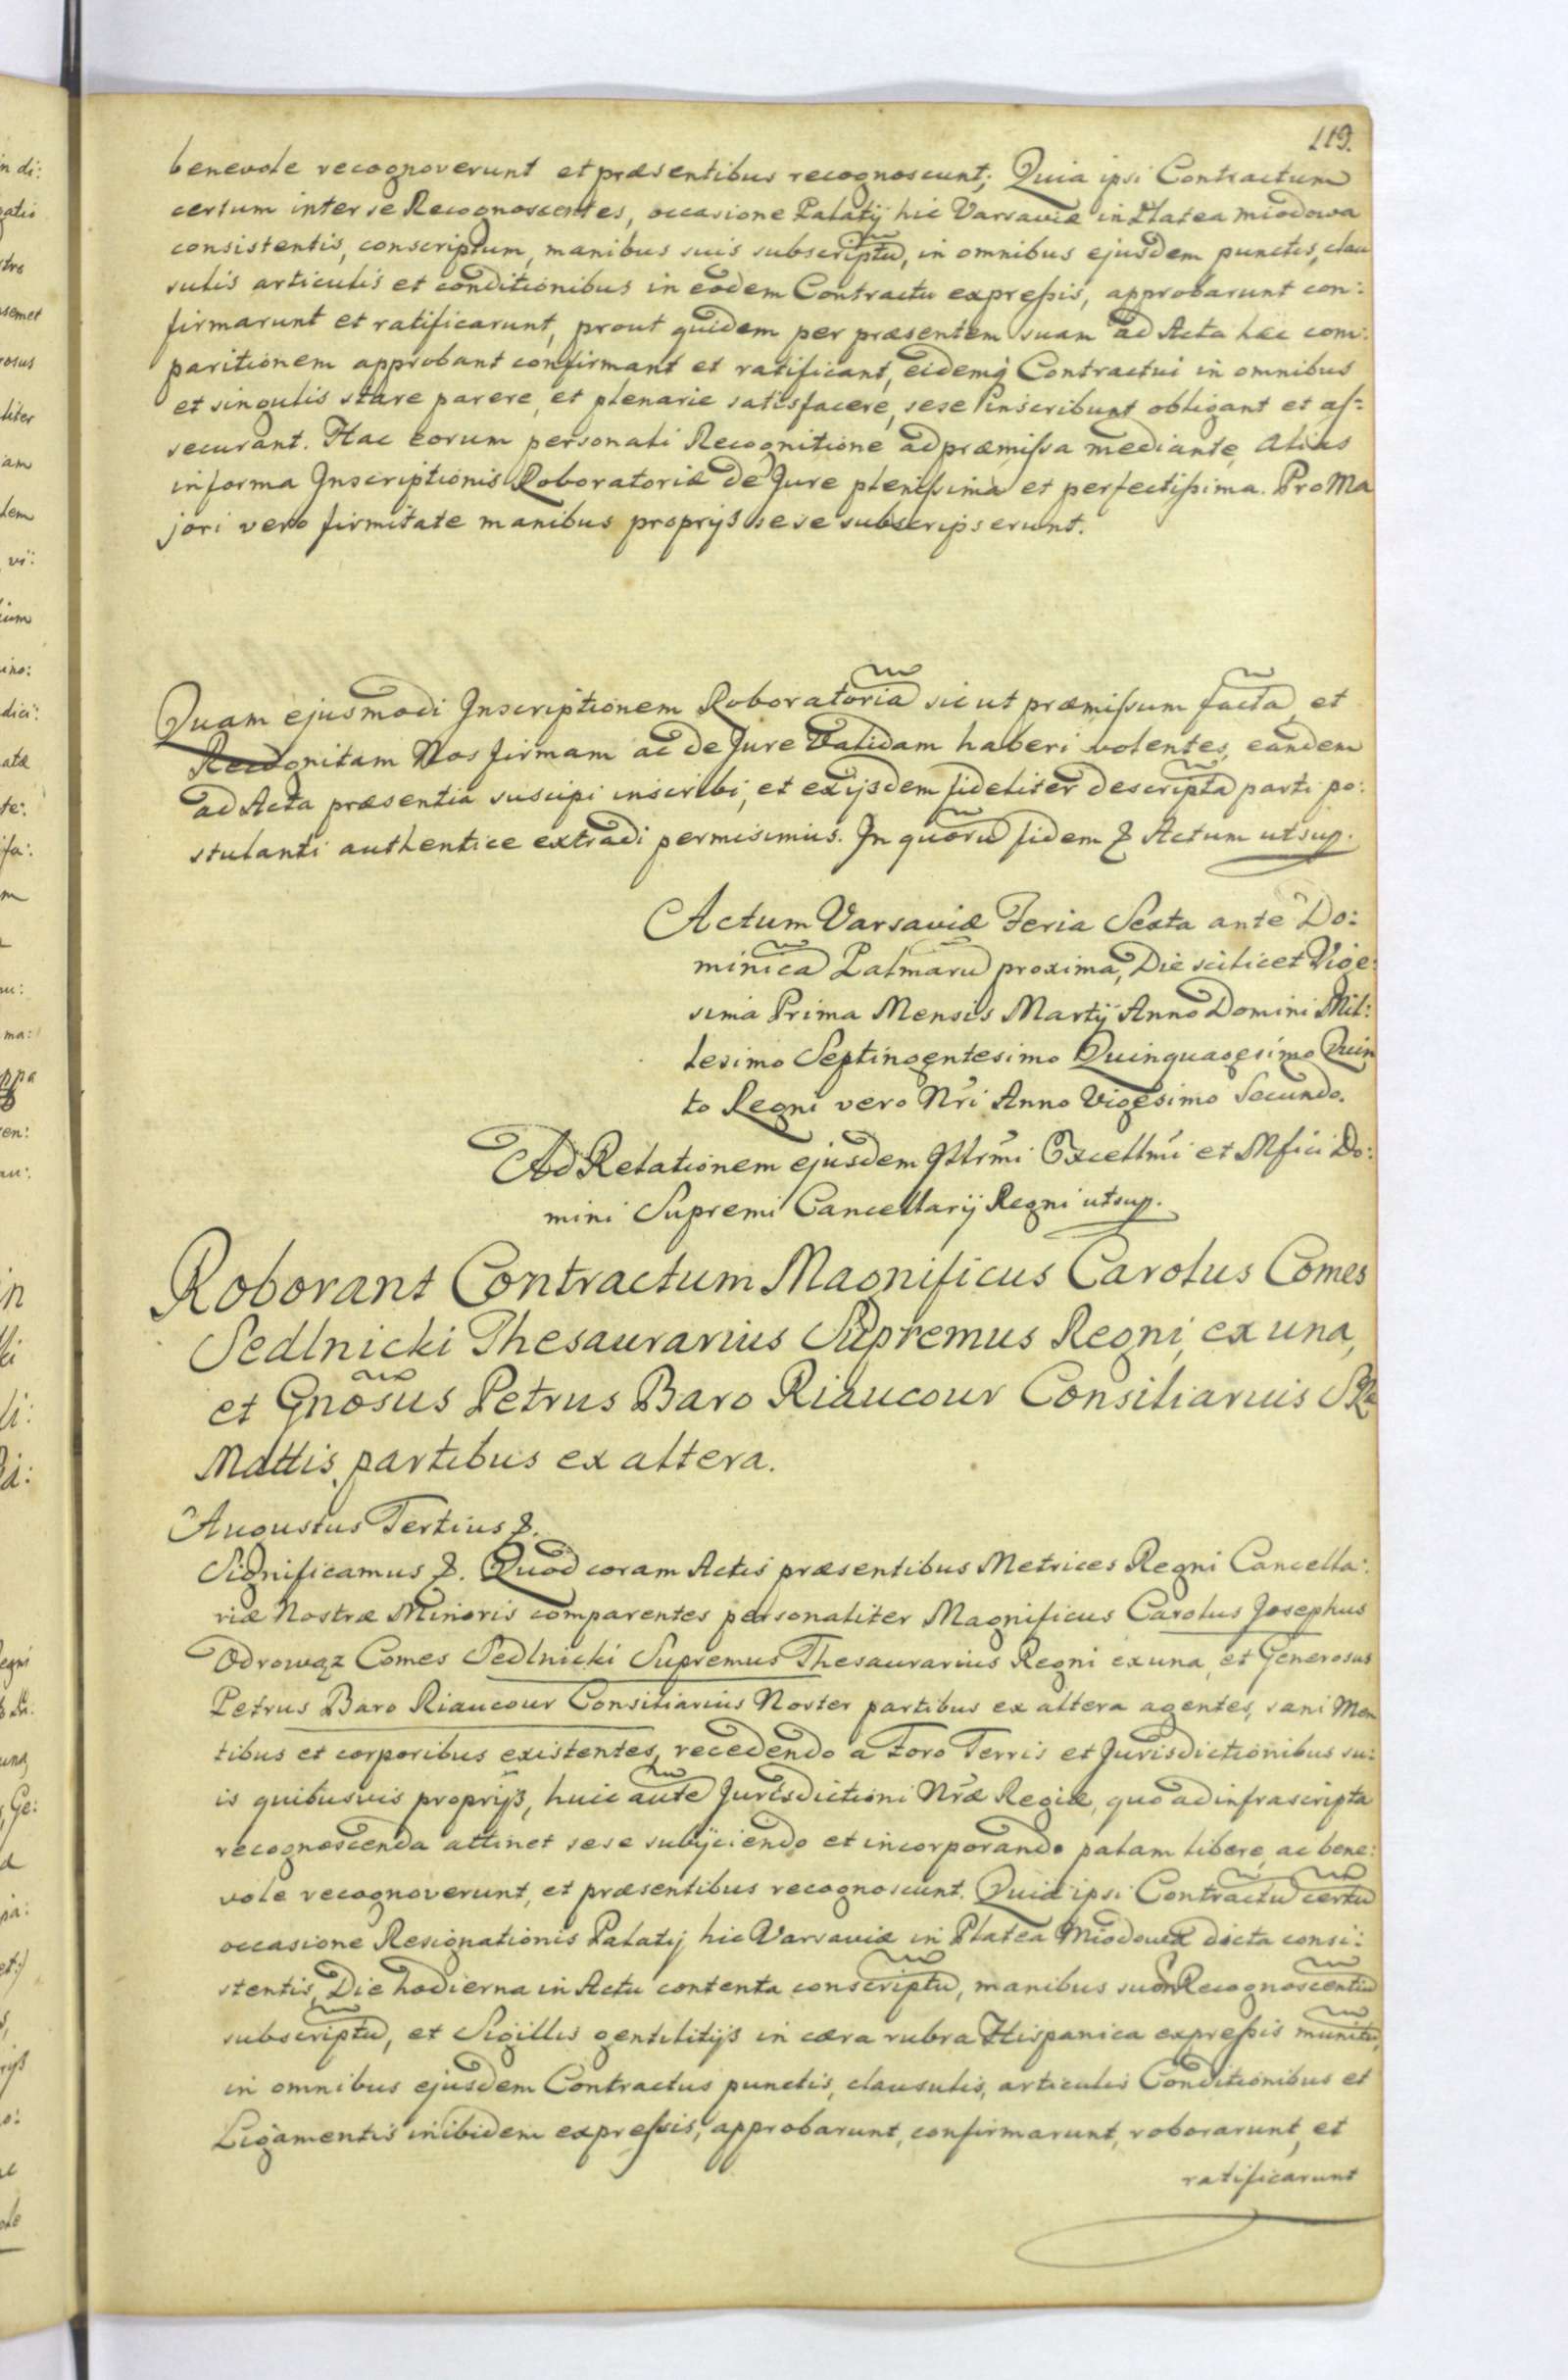 119.
benevole recognoverunt et præsentibus recognoscunt; Quia ipsi Contractum
certum inter se Recognoscentes, occasione Palatij hic Varsaviæ in Platea miodowa
consistentis, conscriptum, manibus suis subscriptũ, in omnibus ejusdem punctis, clau
sulis articulis et conditionibus in eodem Contractu expreſsis, approbarunt con:
firmarunt et ratificarunt, prout quidem per præsentem suam ad Acta hæc com:
paritionem approbant confirmant et ratificant, eidemq Contractui in omnibus
et singulis stare parere, et plenarie satisfacere, sese inscribunt obligant et aſ:
securant. Hac eorum personali Recognitione ad præmiſsa mediante, alias
in forma Inscriptionis Roboratoriæ de Jure pleniſsima et perfectiſsima. Pro Ma
jori vero firmitate manibus proprijs sese subscripserunt.
Quam ejusmodi Inscriptionem Roboratoriã sicut præmiſsum factã, et
Recognitam Nos firmam ac de Jure Validam haberi volentes, eandem
ad Acta præsentia suscipi inscribi, et ex ijsdem fideliter descriptã parti po:
stulanti authentice extradi permisimus. In quorũ fidem & Actum ut sup.
Actum Varsaviæ Feria Sexta ante Do:
minicã Palmarũ proxima, Die scilicet Vige:
sima Prima Mensis Martij Anno Domini Mil:
lesimo Septingentesimo Quinquagesimo Quin
to Regni vero Nri Anno Vigesimo Secundo.
Ad Relationem ejusdem Illrmi Excellmi et Mfici Do:
mini Supremi Cancellarij Regni ut sup.
Roborant Contractum Magnificus Carolus Comes
Sedlnicki Thesaurarius Supremus Regni, ex una,
et Gnõsus Petrus Baro Riaucour Consiliarius SRæ
Mattis, partibus ex altera.
Augustus Tertius &.
Significamus &. Quod coram Actis præsentibus Metrices Regni Cancella:
riæ Nostræ Minoris comparentes personaliter Magnificus Carolus Josephus
Odrowąz Comes Sedlnicki Supremus Thesaurarius Regni ex una, et Generosus
Petrus Baro Riaucour Consiliarius Noster partibus ex altera agentes, sani Men
tibus et corporibus existentes, recedendo a Foro Terris et Jurisdictionibus su:
is quibusvis proprijs, huic aũte Jurisdictioni Nræ Regiæ, quo ad infrascripta
recognoscenda attinet sese subijciendo et incorporando palam libere, ac bene:
vole recognoverunt, et præsentibus recognoscunt. Quia ipsi Contractũ certũ
occasione Resignationis Palatij hic Varsaviæ in Platea Miodowa dicta consi:
stentis, Die hodierna in Actu contenta conscriptũ, manibus suor Recognoscentiũ
subscriptũ, et Sigillis gentilitijs in cæra rubra Hispanica expreſsis munitũ,
in omnibus ejusdem Contractus punctis, clausulis, articulis Conditionibus et
Ligamentis inibidem expreſsis, approbarunt, confirmarunt, roborarunt, et
ratificarunt